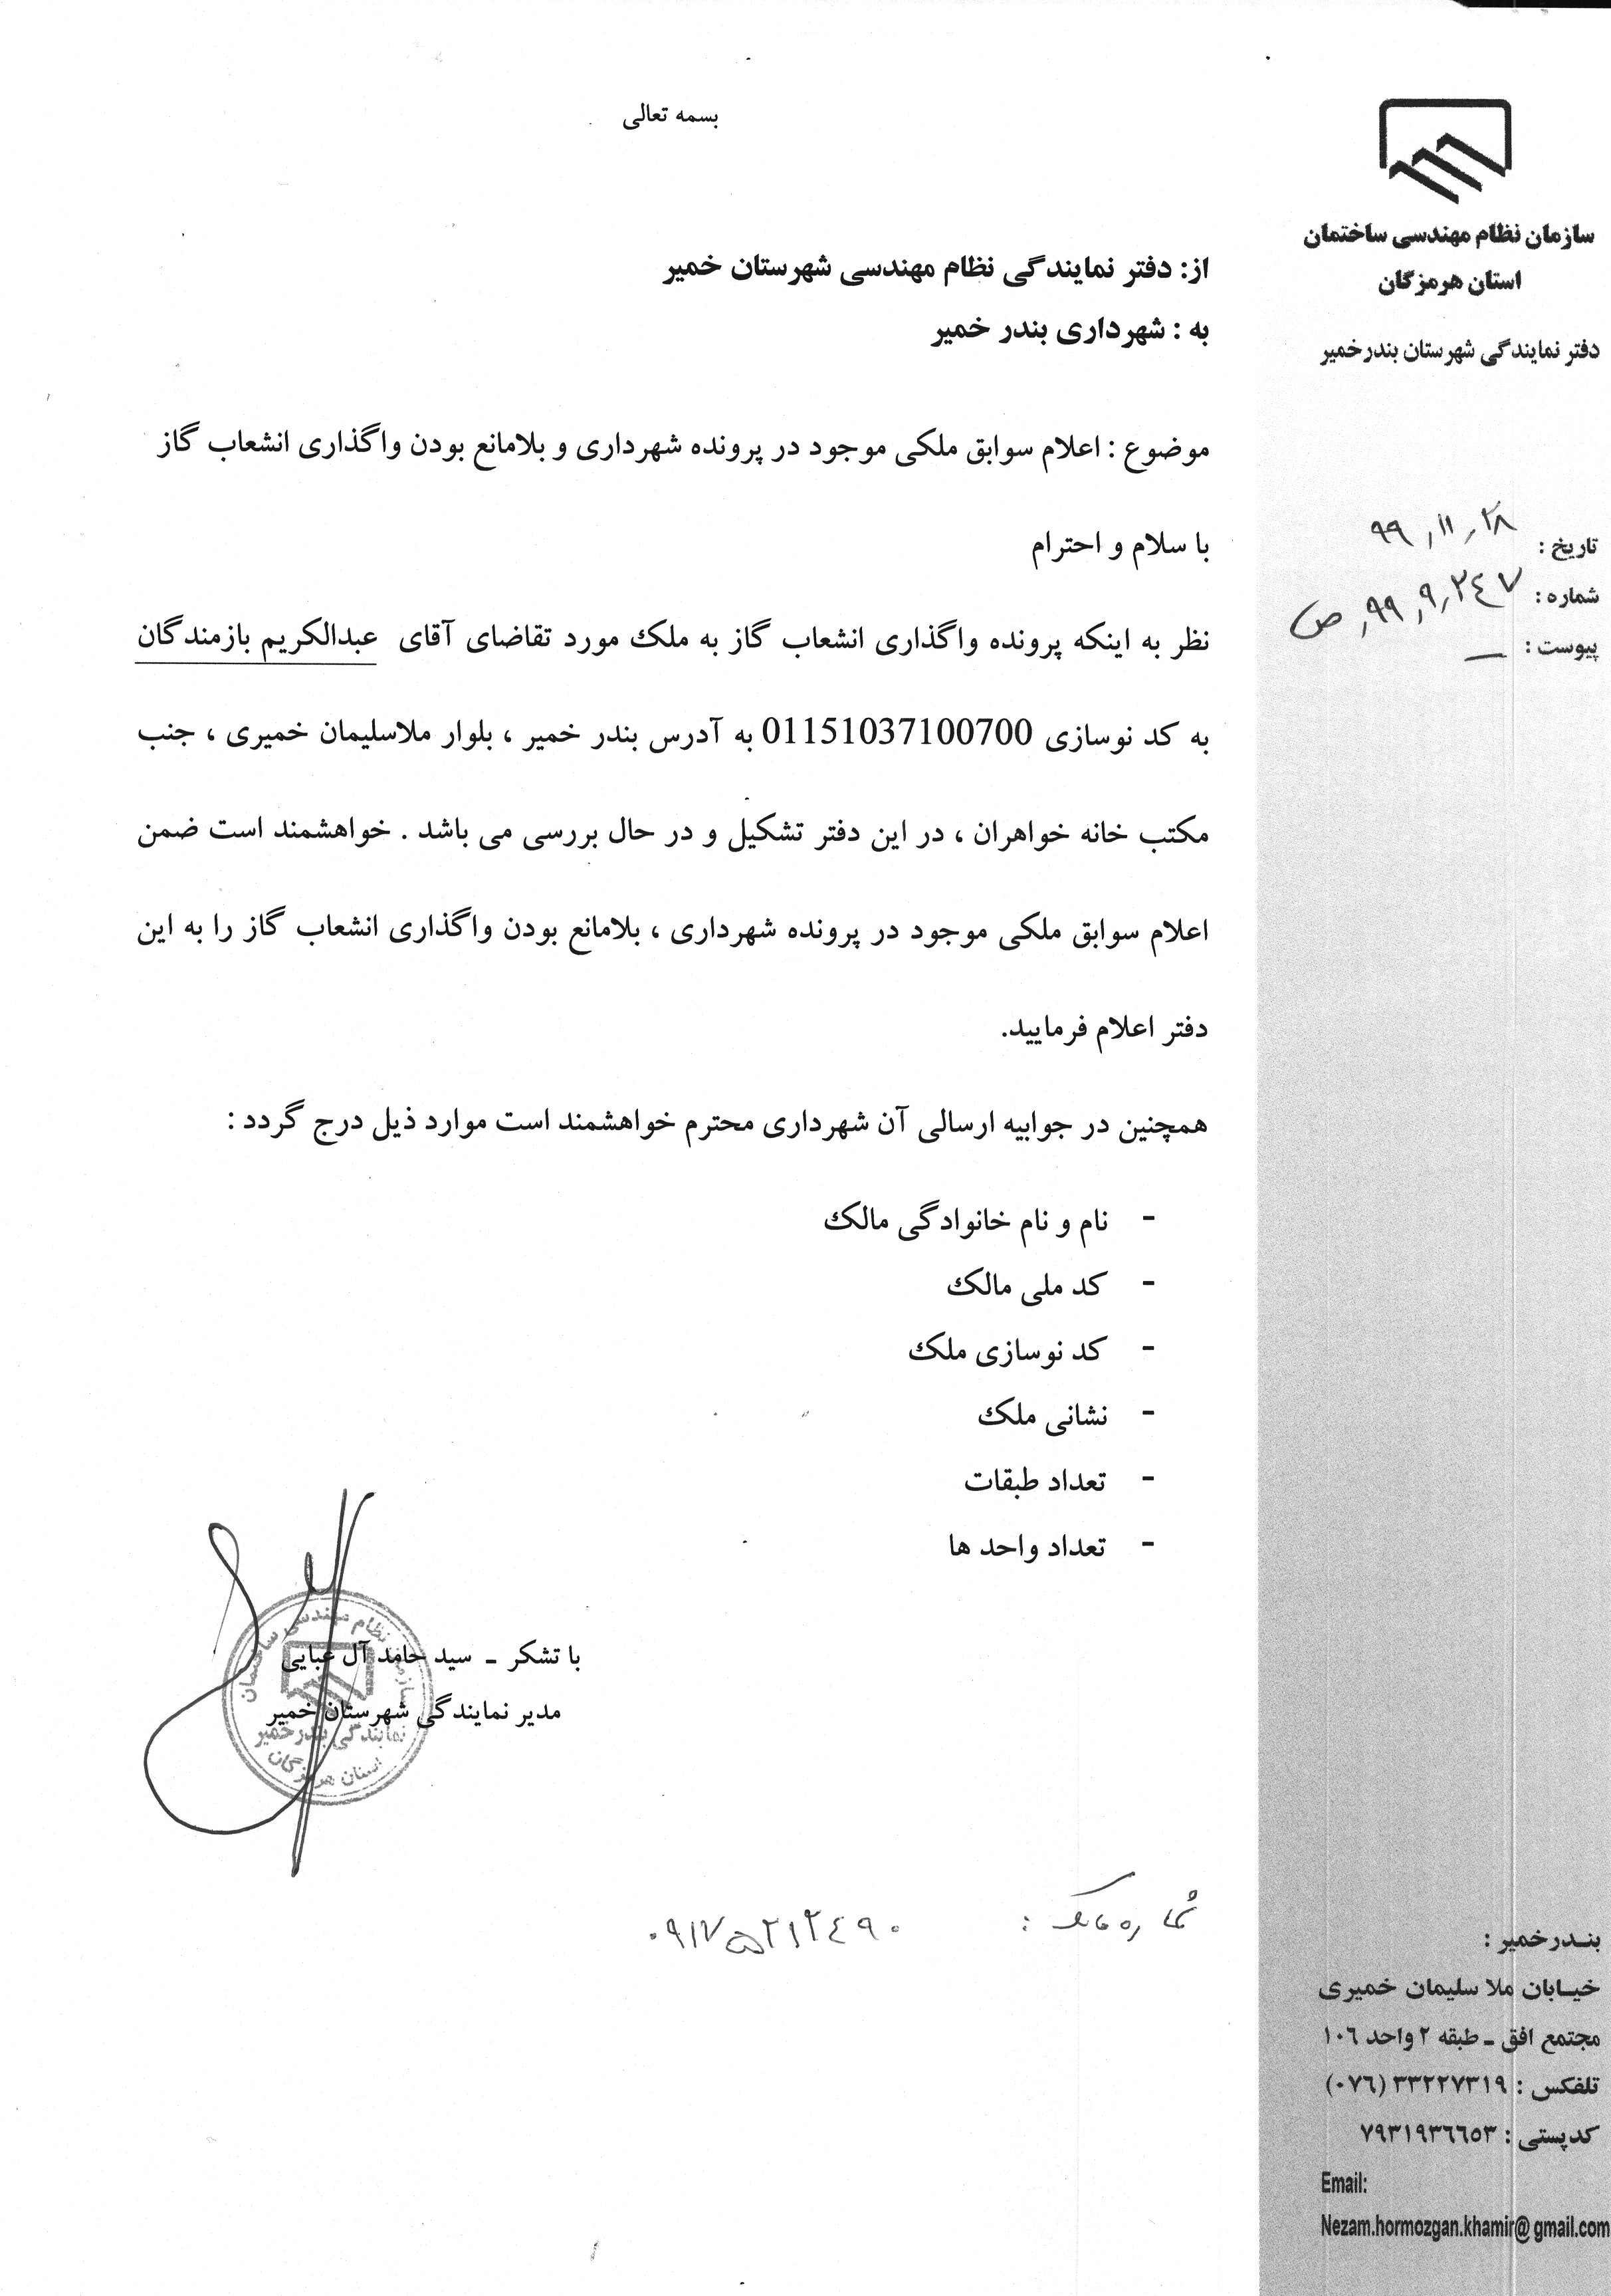 بسمه تعالی
سازمان نظام مهندسی ساختمان
استان هرمزگان
دفتر نمایندگی شهرستان بندرخمیر
تاریخ : ۹۹,۱۱,۲۸
شماره : ۹۹,۹,۲۴۷,ص
پیوست : ــ
از: دفتر نمایندگی نظام مهندسی شهرستان خمیر
به : شهرداری بندر خمیر
موضوع : اعلام سوابق ملکی موجود در پرونده شهرداری و بلامانع بودن واگذاری انشعاب گاز
با سلام و احترام
نظر به اینکه پرونده واگذاری انشعاب گاز به ملک مورد تقاضای آقای عبدالکریم بازمندگان
به کد نوسازی 01151037100700 به آدرس بندر خمیر ، بلوار ملاسلیمان خمیری ، جنب
مکتب خانه خواهران ، در این دفتر تشکیل و در حال بررسی می باشد . خواهشمند است ضمن
اعلام سوابق ملکی موجود در پرونده شهرداری ، بلامانع بودن واگذاری انشعاب گاز را به این
دفتر اعلام فرمایید.
همچنین در جوابیه ارسالی آن شهرداری محترم خواهشمند است موارد ذیل درج گردد :
- نام و نام خانوادگی مالک
- کد ملی مالک
- کد نوسازی ملک
- نشانی ملک
- تعداد طبقات
- تعداد واحد ها
با تشکر ـ سید حامد آل عبایی
مدیر نمایندگی شهرستان خمیر
سازمان نظام مهندسی ساختمان
نمایندگی بندرخمیر
استان هرمزگان
شماره مالک : ۰۹۱۷۵۲۱۲۴۹۰
بنـدرخمیر :
خیـابان ملا سلیمان خمیری
مجتمع افق ـ طبقه ۲ واحد ۱۰۶
تلفکس : ۳۳۲۲۷۳۱۹ (۰۷۶)
کدپستی : ۷۹۳۱۹۳۶۶۵۳
Email:
Nezam.hormozgan.khamir@gmail.com